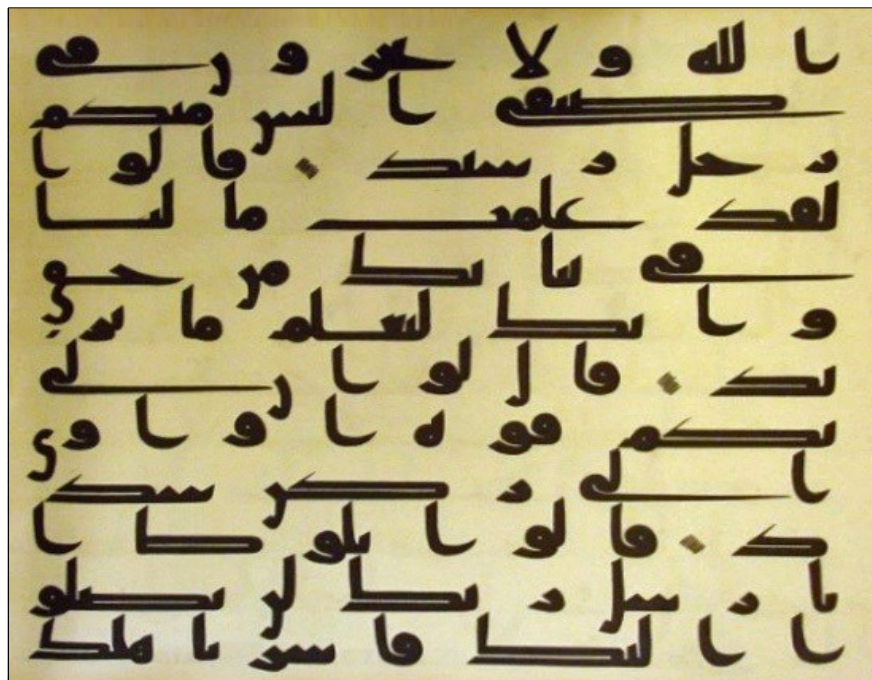 ا الله ولا تخزون في
ضيفي اليس منكم
رجل رشيد قالوا
لقد علمت ما لنا
في بناتك من حق
وانك لتعلم ما نر
يد قال لو ان لي
بكم قوة او اوي
الى ركن شد
يد قالوا يلوط ا
نا رسل ربك لن يصلو
ا اليك فاسر باهلك